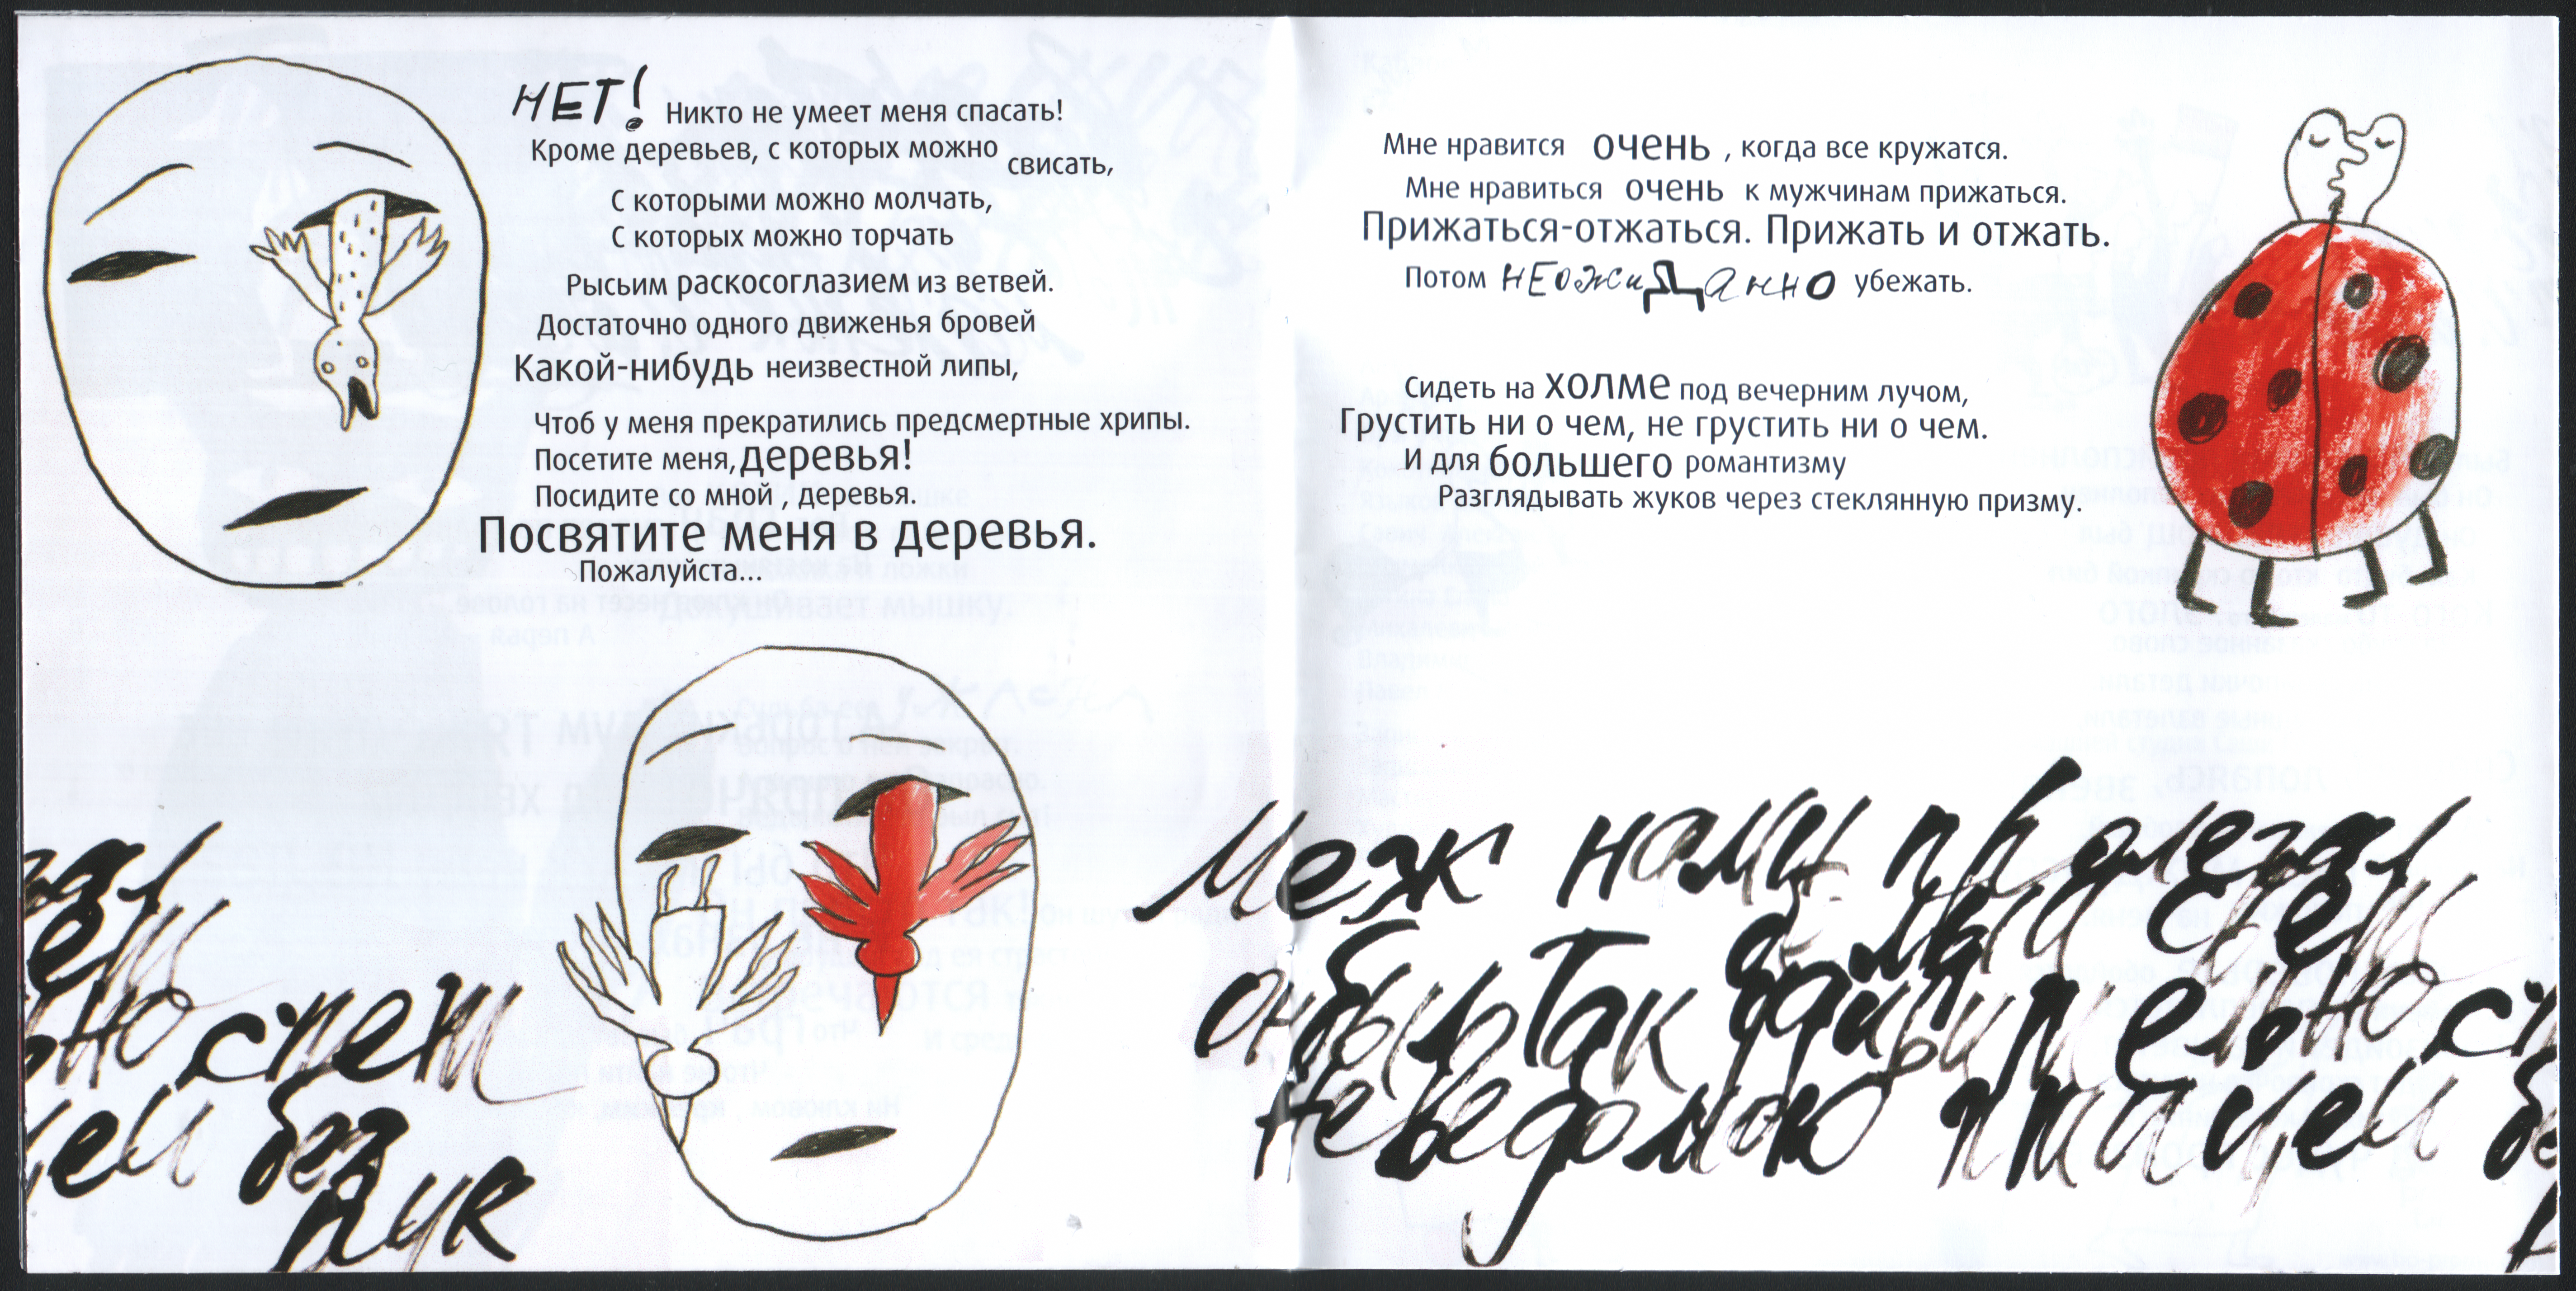 НЕТ! Никто не умеет меня спасать!
Кроме деревьев, с которых можно свисать,
С которыми можно молчать,
С которых можно торчать
Рысьим раскосоглазием из ветвей.
Достаточно одного движенья бровей
Какой-нибудь неизвестной липы,
Чтоб у меня прекратились предсмертные хрипы.
Посетите меня, деревья!
Посидите со мной , деревья.
Посвятите меня в деревья.
Пожалуйста...
Мне нравится очень , когда все кружатся.
Мне нравиться очень к мужчинам прижаться.
Прижаться-отжаться. Прижать и отжать.
Потом НЕожиДанно убежать.
Сидеть на холме под вечерним лучом,
Грустить ни о чем, не грустить ни о чем.
И для большего романтизму
Разглядывать жуков через стеклянную призму.
Меж нами пролегал
он был так
неведомою птицей без
рук